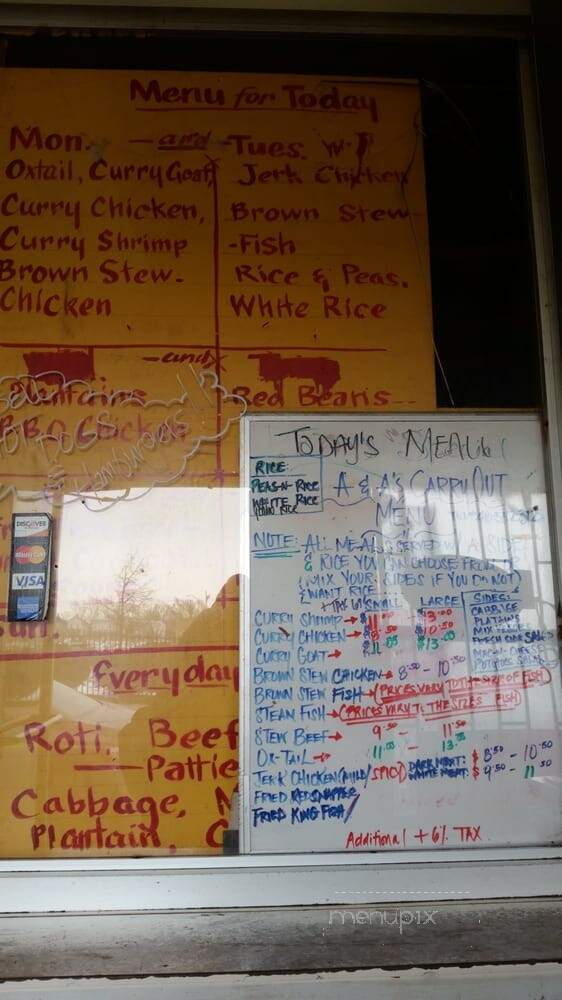 Menu for Today
Mon. - and - Tues.
Oxtail, Curry Goat, Jerk Chicken
Curry Chicken, Brown Stew
Curry Shrimp - Fish
Brown Stew. Rice & Peas.
Chicken White Rice
- and
Plantains Red Beans
BBQ Chicken
DOGS
DISCOVER
MasterCard
VISA
Sun.
Everyday
Roti. Beef
Pattie
Cabbage,
Plantain,
TODAY'S MENU
RICE:
PEAS-N-RICE
WHITE RICE
A & A'S CARRY OUT
MENU
NOTE: ALL MEALS SERVED W/ A SIDE
& RICE YOU CAN CHOOSE FROM
(MIX YOUR SIDES IF YOU DO NOT)
WANT RICE
+ TAX 6% SMALL LARGE
SIDES:
CABBAGE
PLATAINS
POTATOE SALAD
CURRY SHRIMP
CURRY CHICKEN → 8.50 $10.50
CURRY GOAT → $11.00 $13.00
BROWN STEW CHICKEN → 8.50 - 10.50
BROWN STEW FISH → (PRICES VARY TO THE SIZE OF FISH)
STEAM FISH → (PRICES VARY TO THE SIZES FISH)
STEW BEEF → 9.50 - 11.50
OX-TAIL → 11.00 - 13.00
JERK CHICKEN (MILD/SPICY) DARK MEAT: $8.50 - 10.50
WHITE MEAT: $9.50 - 11.50
FRIED RED SNAPPER
FRIED KING FISH
Additional + 6% TAX
menupix